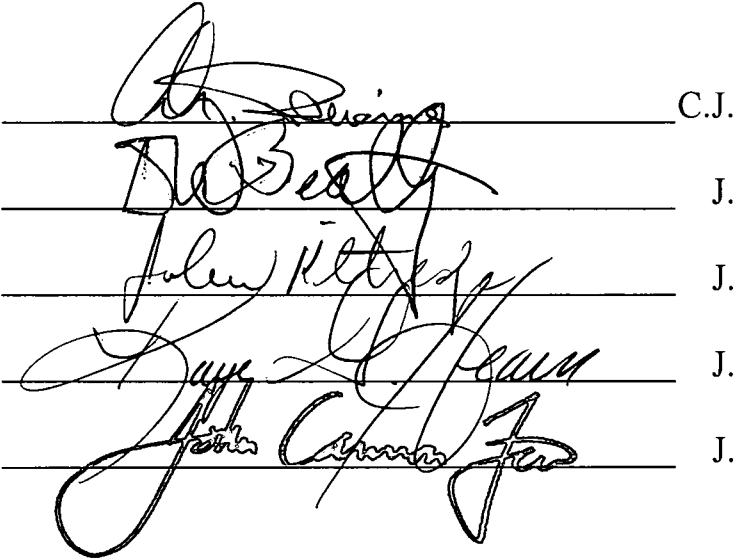 C.J.
Beatty J.
John Kittredge J.
Kaye G. Hearn J.
John Cannon Few J.